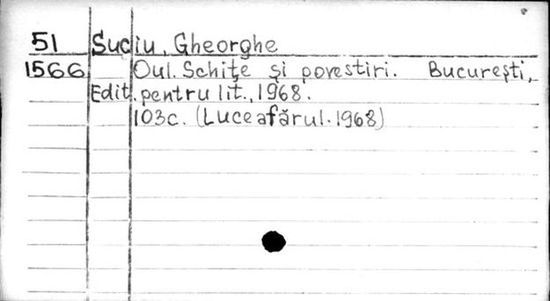 51 Suciu, Gheorghe
1566 Oul. Schiţe şi povestiri. Bucureşti,
Edit. pentru lit., 1968.
103c. (Luceafărul. 1968)